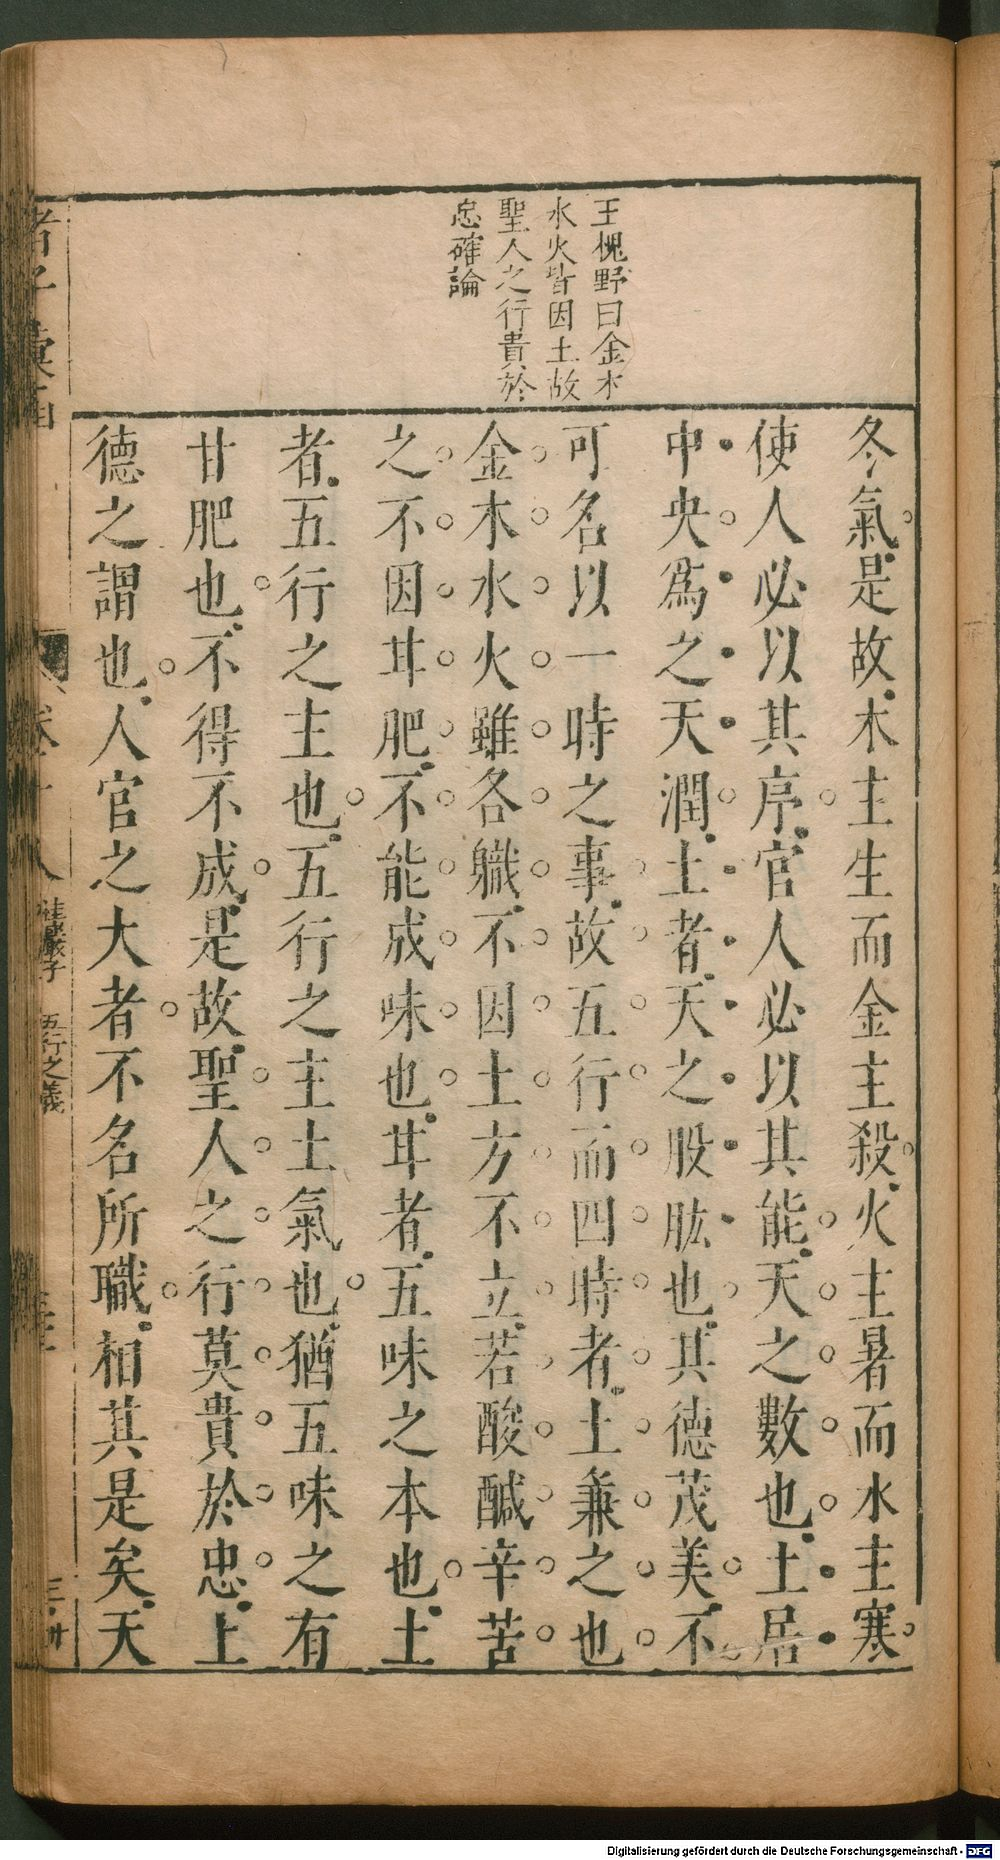 王槐野曰金木
水火皆因土故
聖人之行貴於
忠確論
冬氣是故木主生而金主殺火主暑而水主寒
使人必以其序官人必以其能天之數也土居
中央爲之天潤土者天之股肱也其德茂美不
可名以一時之事故五行而四時者土兼之也
金木水火雖各軄不因土方不立若酸醎辛苦
之不因甘肥不能成味也甘者五味之本也土
者五行之主也五行之主土氣也猶五味之有
甘肥也不得不成是故聖人之行莫貴於忠上
德之謂也人官之大者不名所職相其是矣天
諸子彙函
卷十八
桂巖子 五行之義
Digitalisierung gefördert durch die Deutsche Forschungsgemeinschaft - DFG